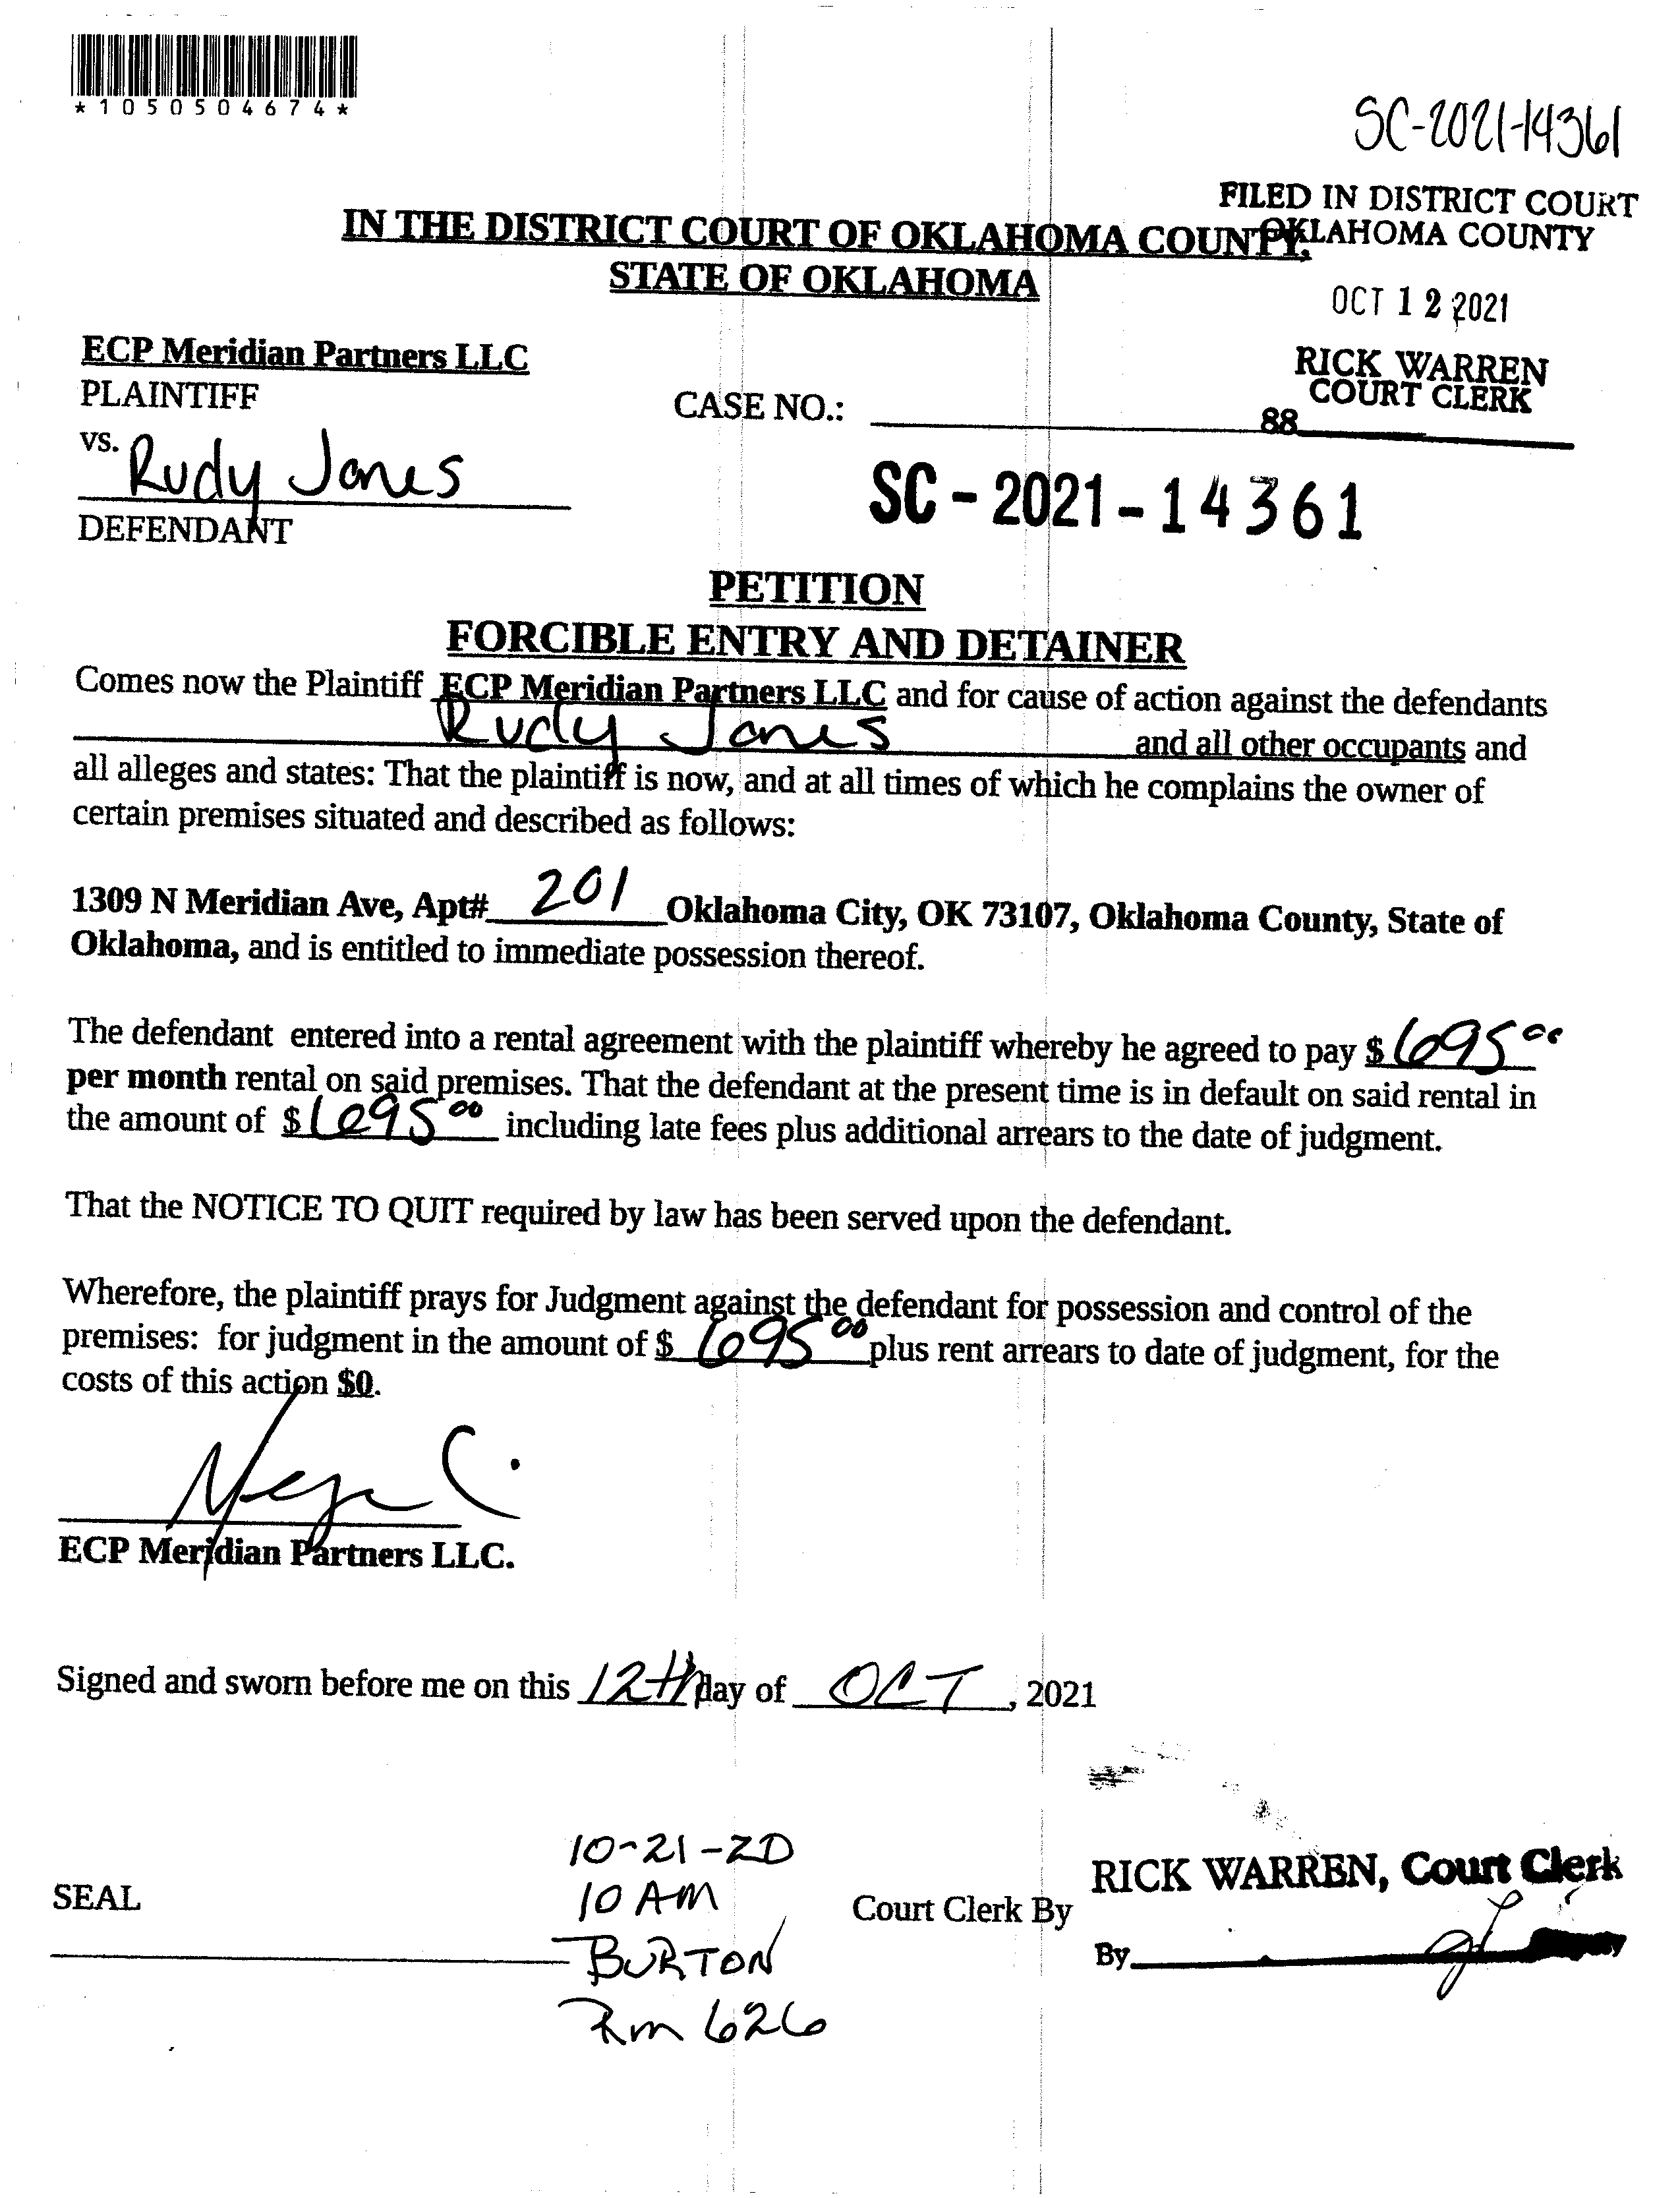 *1050504674*
SC-2021-14361
FILED IN DISTRICT COURT
OKLAHOMA COUNTY
IN THE DISTRICT COURT OF OKLAHOMA COUNTY,
STATE OF OKLAHOMA
OCT 12 2021
RICK WARREN
COURT CLERK
88
ECP Meridian Partners LLC
PLAINTIFF
CASE NO.:
vs. Rudy Jones
SC-2021-14361
DEFENDANT
PETITION
FORCIBLE ENTRY AND DETAINER
Comes now the Plaintiff ECP Meridian Partners LLC and for cause of action against the defendants
Rudy Jones and all other occupants and
all alleges and states: That the plaintiff is now, and at all times of which he complains the owner of
certain premises situated and described as follows:
1309 N Meridian Ave, Apt# 201 Oklahoma City, OK 73107, Oklahoma County, State of
Oklahoma, and is entitled to immediate possession thereof.
The defendant entered into a rental agreement with the plaintiff whereby he agreed to pay $ 695 00
per month rental on said premises. That the defendant at the present time is in default on said rental in
the amount of $ 695 00 including late fees plus additional arrears to the date of judgment.
That the NOTICE TO QUIT required by law has been served upon the defendant.
Wherefore, the plaintiff prays for Judgment against the defendant for possession and control of the
premises: for judgment in the amount of $ 695 00 plus rent arrears to date of judgment, for the
costs of this action $0.
ECP Meridian Partners LLC.
Signed and sworn before me on this 12th day of OCT, 2021
10-21-2D
10 AM
BURTON
Rm 626
SEAL
Court Clerk By
RICK WARREN, Court Clerk
By